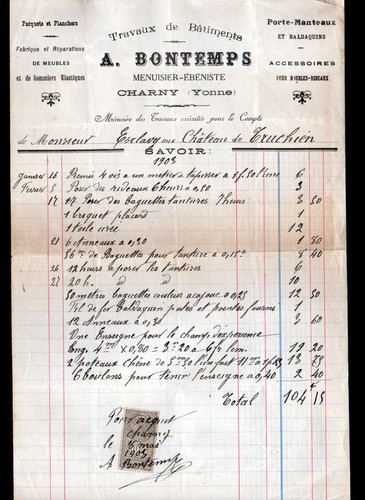 Parquets et Planchers
Fabrique et Réparations
DE MEUBLES
et de Sommiers Elastiques
Travaux de Bâtiments
A. BONTEMPS
MENUISIER-ÉBENISTE
CHARNY (Yonne)
Porte-Manteaux
ET BALDAQUINS
ACCESSOIRES
POUR DOUBLES-RIDEAUX
Mémoire des Travaux exécutés pour le Compte
de Monsieur Esclavy au Château de Truchien
SAVOIR:
1903
Janvier 16 Remis 4 ois a un metier a tapisser a 1f50 l'un 6
Fevrier 5 Poser du rideaux 6 heures a 0.50 3
17 17 Poser des baguettes tentures 7 heures 3 50
1 Croquet placard 1
1 Toile cirée 12
21 6 Anneaux a 0,30 1 80
56m de Baguettes pour tenture a 0,15c 8 40
26 12 heures a poser les tentures 6
27 20 h. d° d° 10
50 metres baguettes couleur acajou a 0,25 12 50
Fil de fer Baldaquin pates et pointes fournie 1
12 Anneaux a 0,30 3 60
Une Enseigne pour le champ
Eng. 4m × 0,80 = 3m20 a 6fr le m. 19 20
2 poteaux chêne de 13 75
6 boulons pour tenir l'enseigne a 0,40 2 40
Total 104f 15
Pour acquit
Charny
le 8 mai
1903
A Bontemps